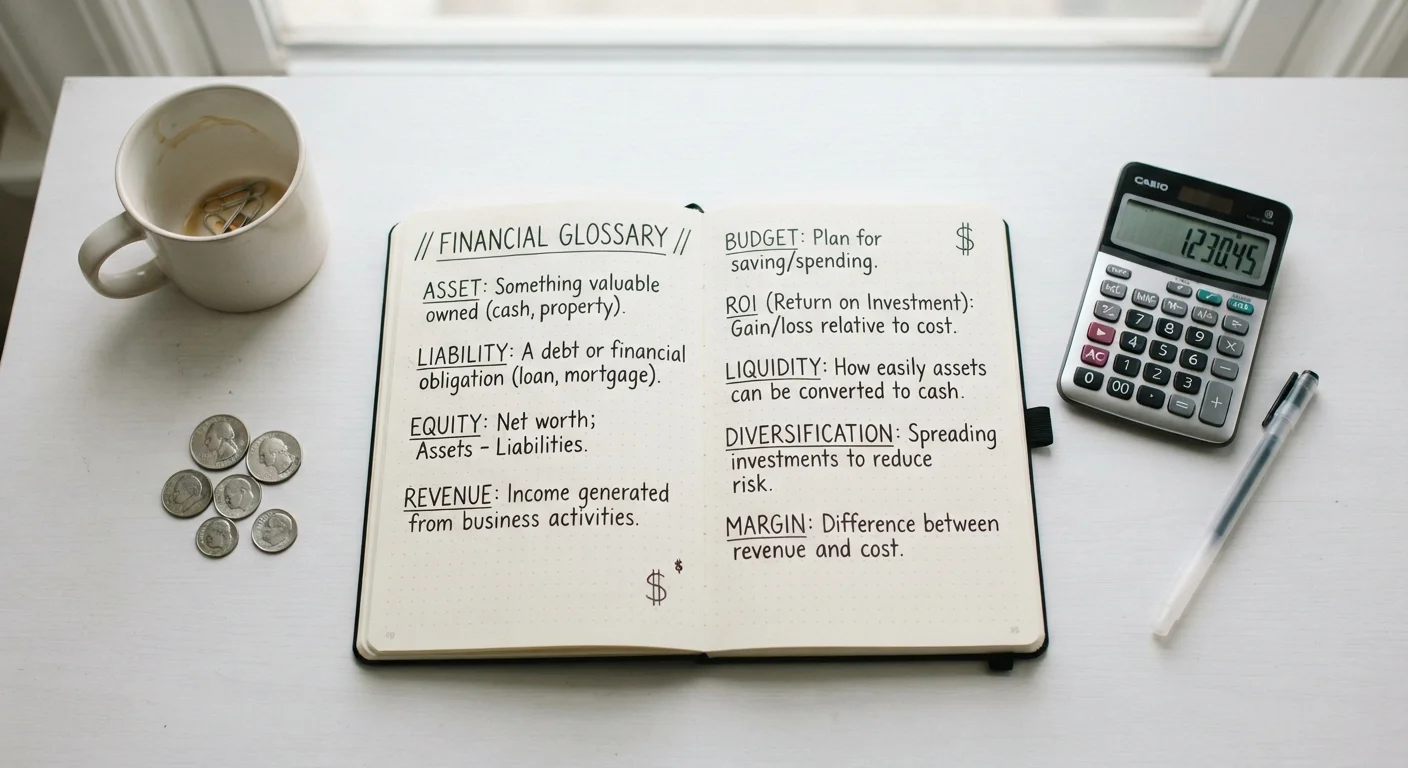 // FINANCIAL GLOSSARY //
ASSET: Something valuable
owned (cash, property).
LIABILITY: A debt or financial
obligation (loan, mortgage).
EQUITY: Net worth;
Assets – Liabilities.
REVENUE: Income generated
from business activities.
$ $
19
BUDGET: Plan for
saving/spending.
$
ROI (Return on Investment):
Gain/loss relative to cost.
LIQUIDITY: How easily assets
can be converted to cash.
DIVERSIFICATION: Spreading
investments to reduce
risk.
MARGIN: Difference between
revenue and cost.
CASIO
1230.45
7 8 9 ×
4 5 6 −
AC 1 2 3 +
0 00 · =